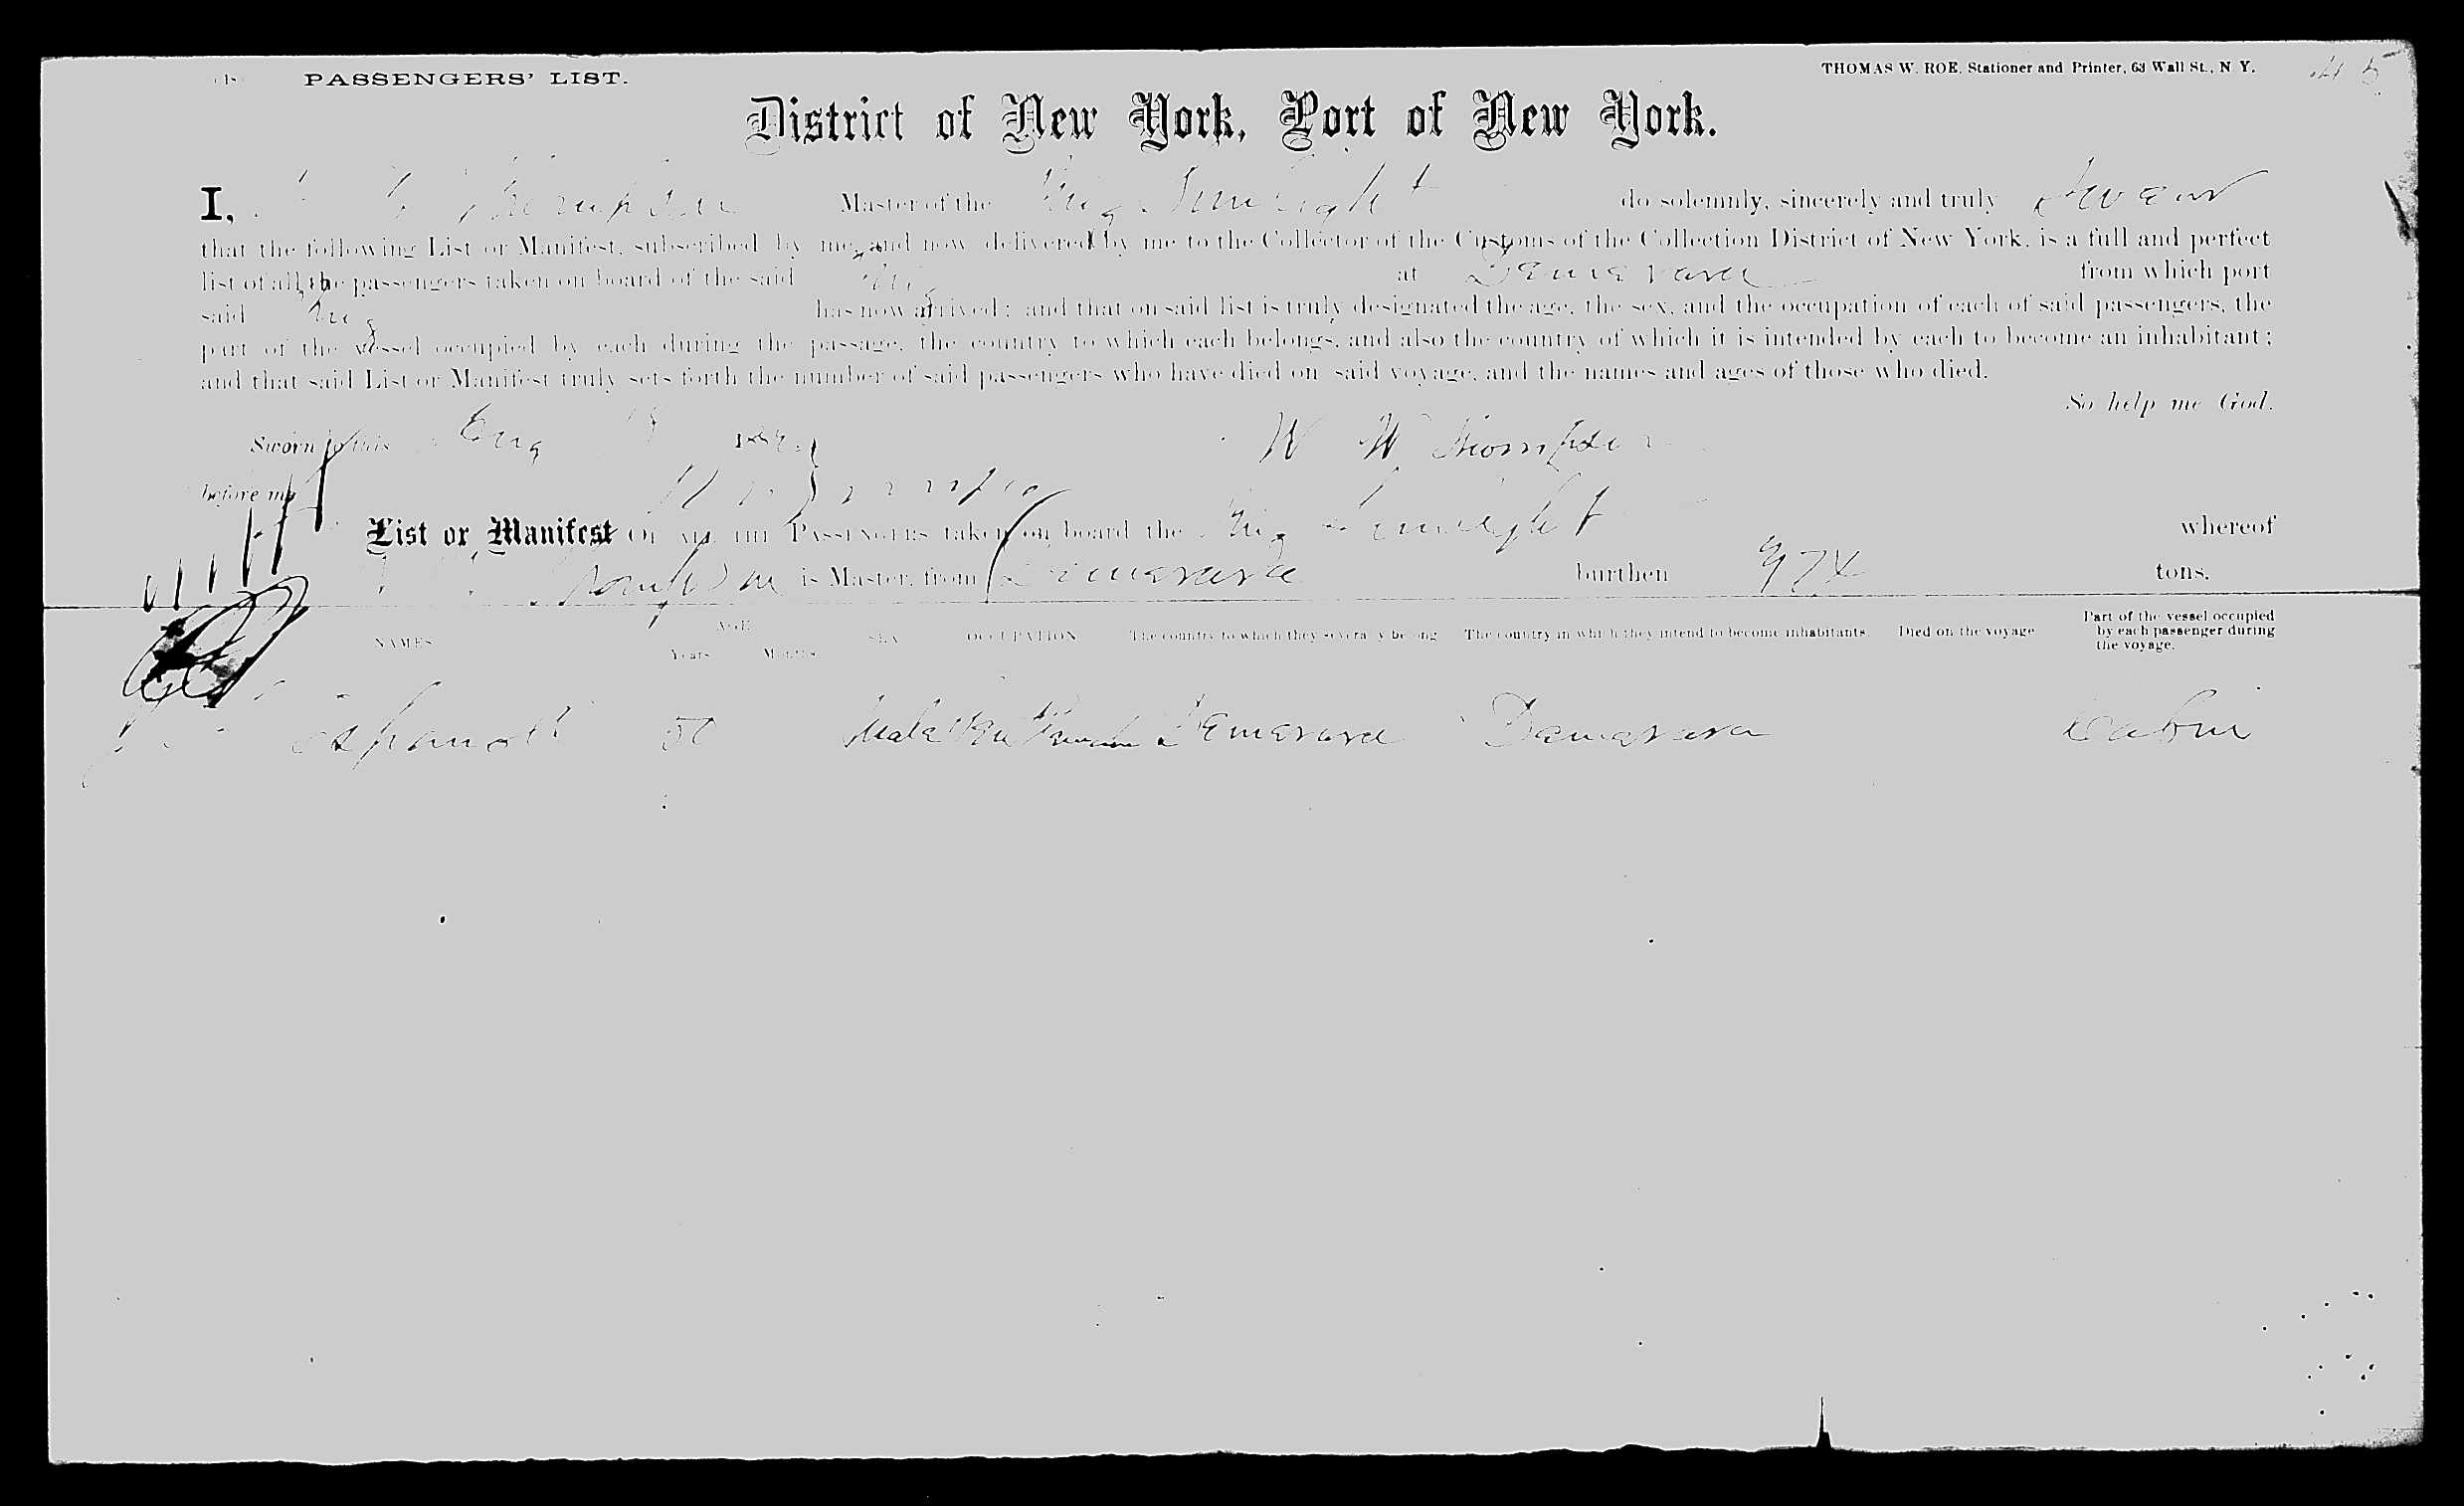 PASSENGERS' LIST.
THOMAS W. ROE, Stationer and Printer, 63 Wall St., N. Y.
45
District of New York, Port of New York.
I, Thompson Master of the Brig Sunlight do solemnly, sincerely and truly Swear
that the following List or Manifest, subscribed by me, and now delivered by me to the Collector of the Customs of the Collection District of New York, is a full and perfect
list of all the passengers taken on board of the said Brig at Demarara from which port
said Brig has now arrived; and that on said list is truly designated the age, the sex, and the occupation of each of said passengers, the
part of the vessel occupied by each during the passage, the country to which each belongs, and also the country of which it is intended by each to become an inhabitant;
and that said List or Manifest truly sets forth the number of said passengers who have died on said voyage, and the names and ages of those who died.
So help me God.
Sworn to this Aug 188 W W Thompson
before me
List or Manifest OF ALL THE PASSENGERS taken on board the Brig Sunlight whereof
Thompson is Master, from Demarara burthen 974 tons.
NAMES
AGE
Years. Months.
SEX
OCCUPATION
The country to which they severally belong
The country in which they intend to become inhabitants.
Died on the voyage
Part of the vessel occupied by each passenger during the voyage.
50 Male Demarara Demarara Cabin